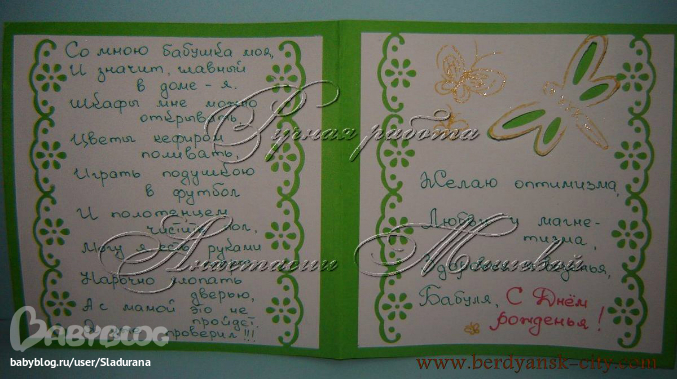 Со мною бабушка моя,
И значит, главный
в доме - я.
Шкафы мне можно
открывать,
Цветы кефиром
поливать,
Играть подушкою
в футбол
И полотенцем
чистить пол,
Могу я есть руками
Нарочно хлопать
дверью,
А с мамой это не
пройдёт.
проверил!!!
Желаю оптимизма,
Любви и магне-
тизма,
Здоровья, везенья,
Бабуля, С Днём
рожденья!
Ручная работа
Анастасии
BABYBLOG
babyblog.ru/user/Sladurana
www.berdyansk-city.com